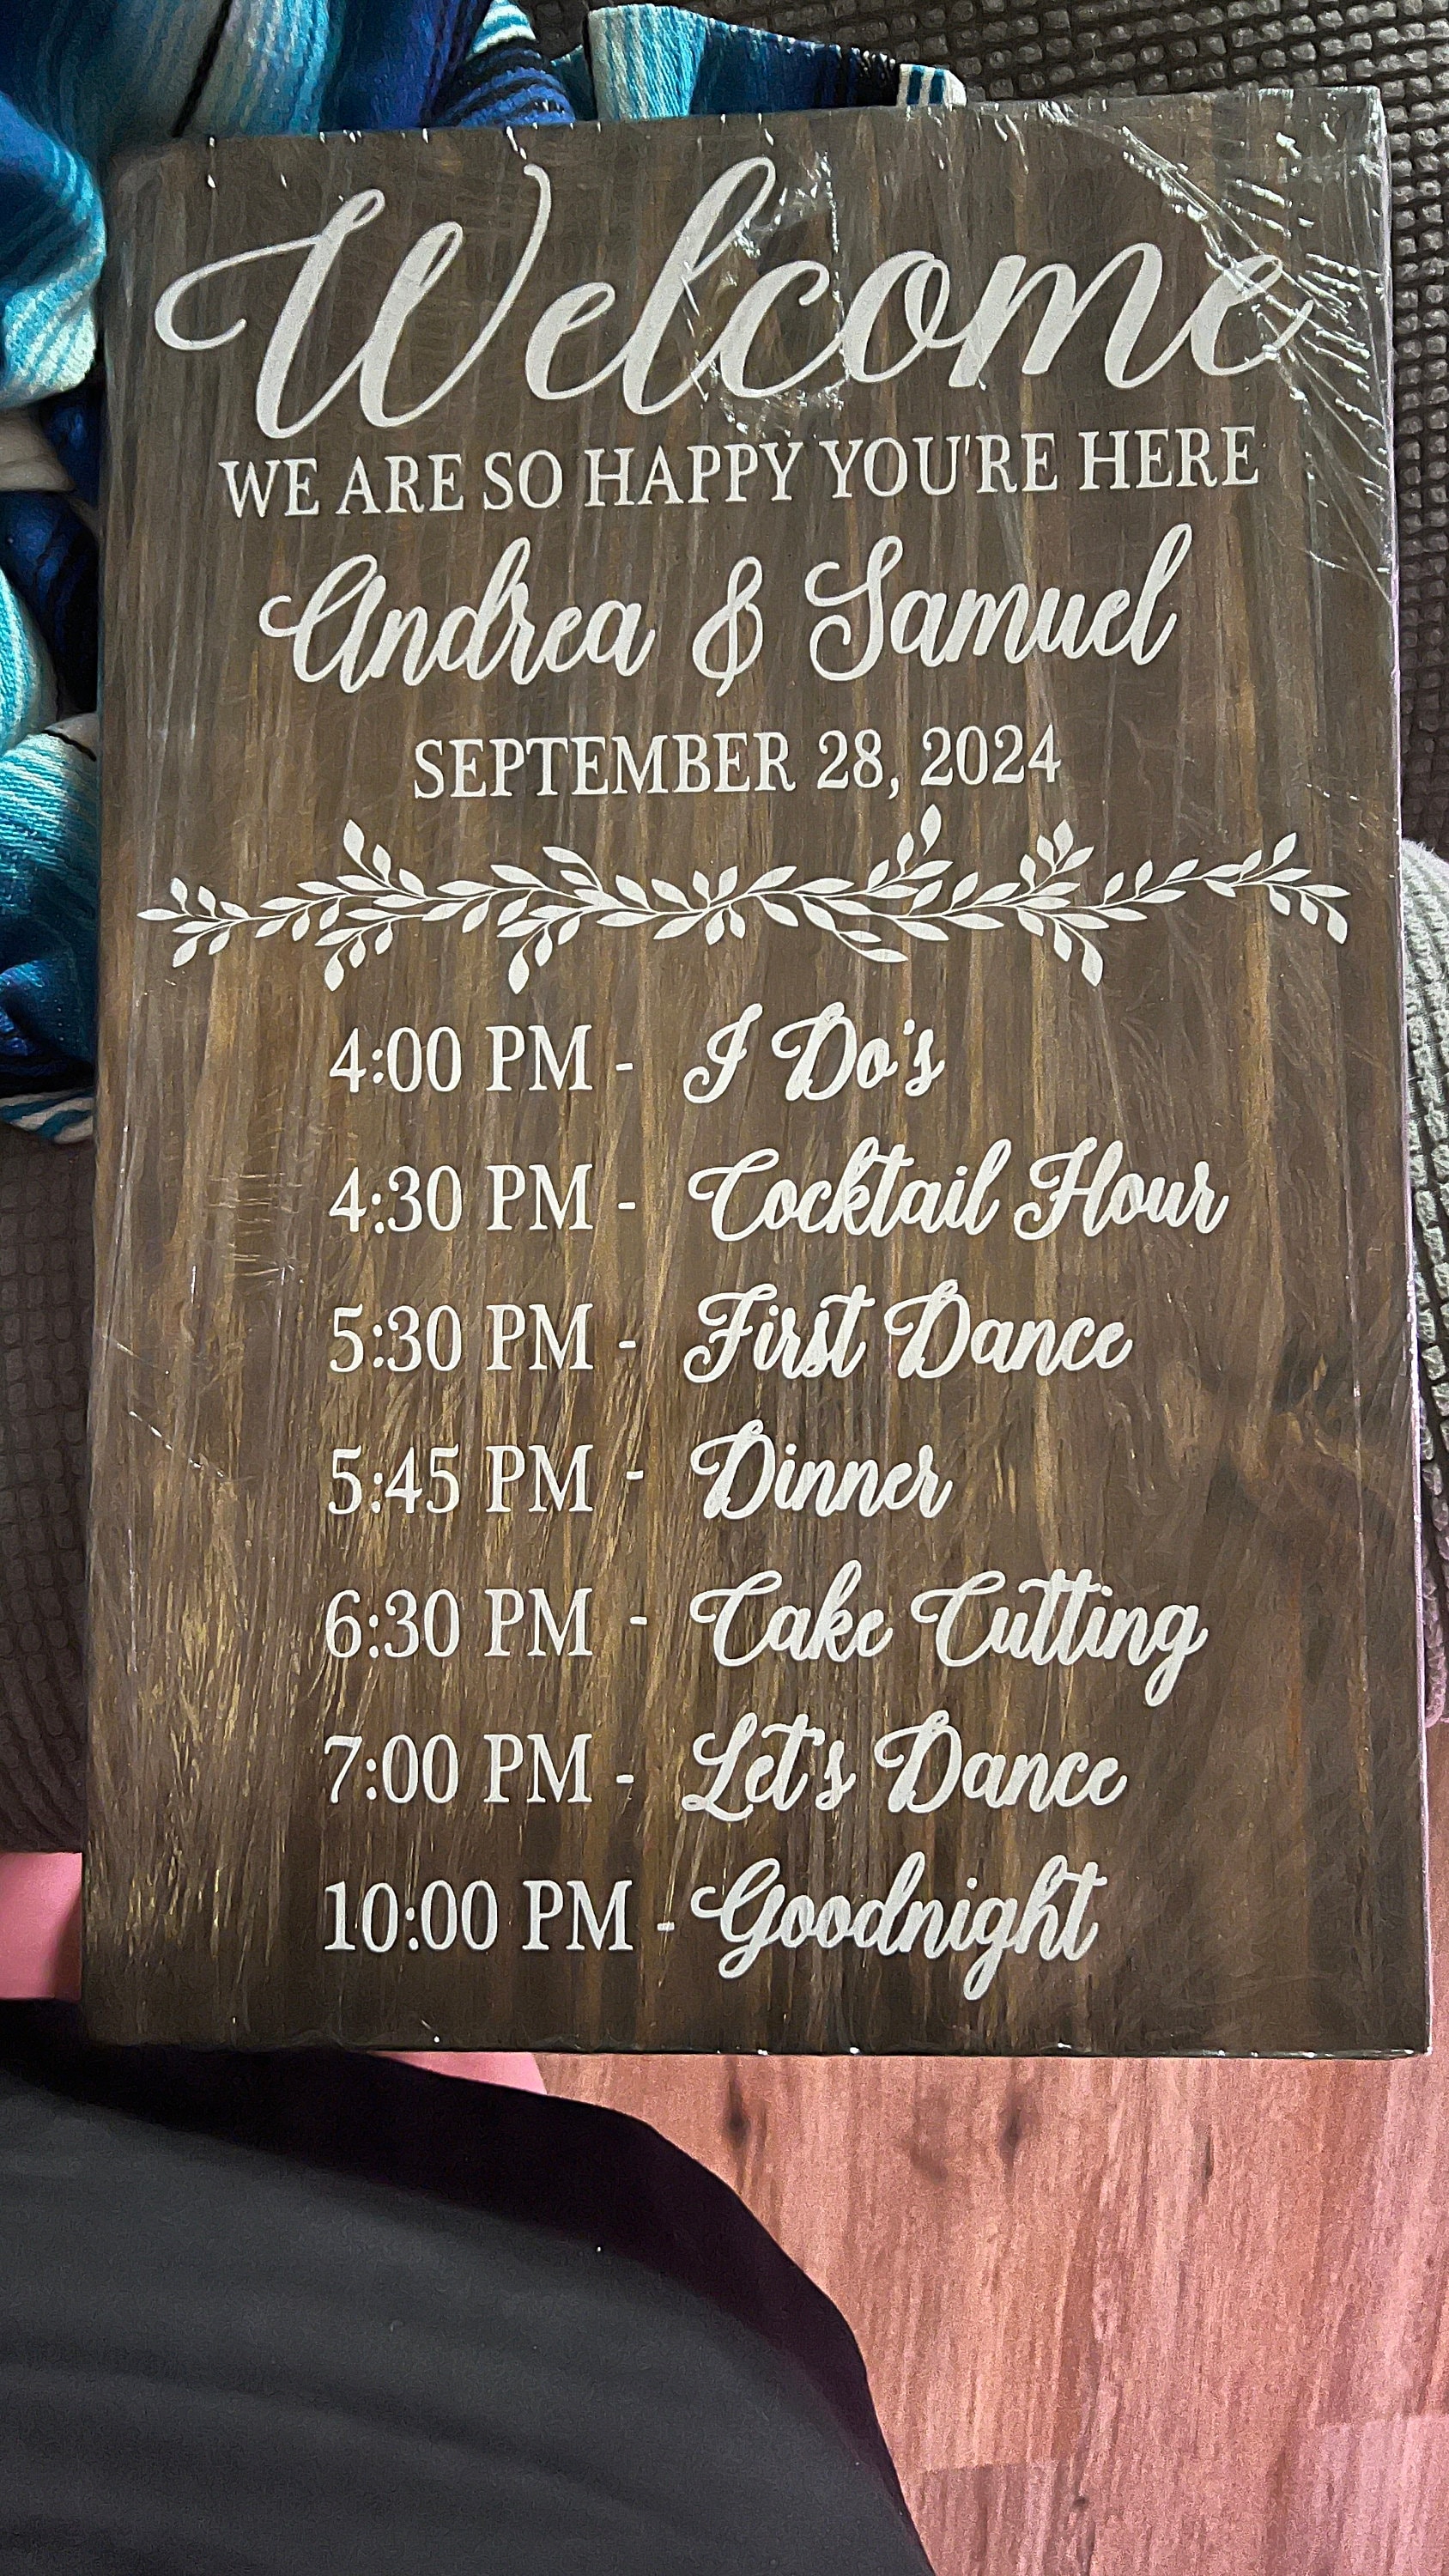 Welcome
WE ARE SO HAPPY YOU'RE HERE
Andrea & Samuel
SEPTEMBER 28, 2024
4:00 PM - I Do's
4:30 PM - Cocktail Hour
5:30 PM - First Dance
5:45 PM - Dinner
6:30 PM - Cake Cutting
7:00 PM - Let's Dance
10:00 PM - Goodnight